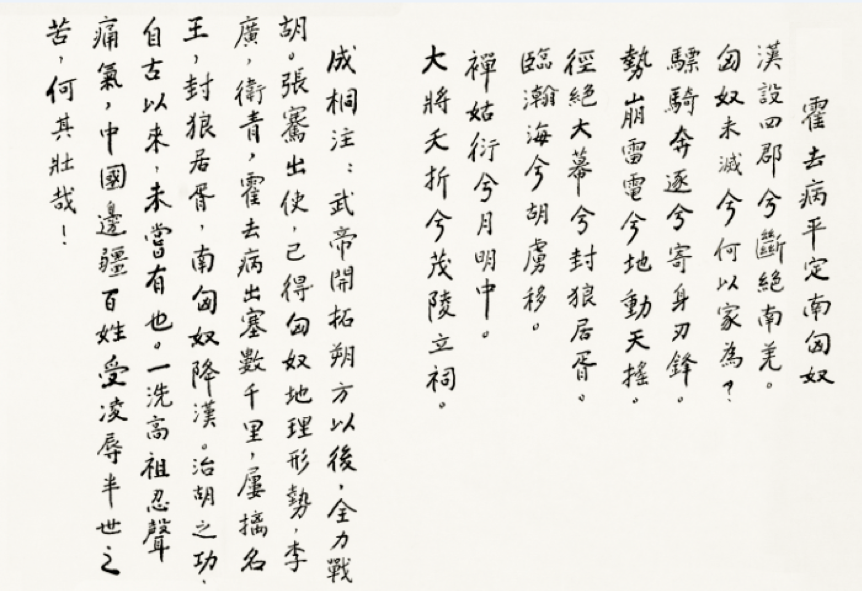 霍去病平定南匈奴
漢設四郡兮斷絕南羌。
匈奴未滅兮何以家為？
驃騎奔逐兮寄身刃鋒。
勢崩雷電兮地動天搖。
徑絕大幕兮封狼居胥。
臨瀚海兮胡虜移。
禪姑衍兮月明中。
大將夭折兮茂陵立祠。
成桐注：武帝開拓朔方以後，全力戰
胡。張騫出使，已得匈奴地理形勢，李
廣，衛青，霍去病出塞數千里，屢擒名
王，封狼居胥，南匈奴降漢。治胡之功，
自古以來，未嘗有也。一洗高祖忍聲
痛氣，中國邊疆百姓受凌辱半世之
苦，何其壯哉！